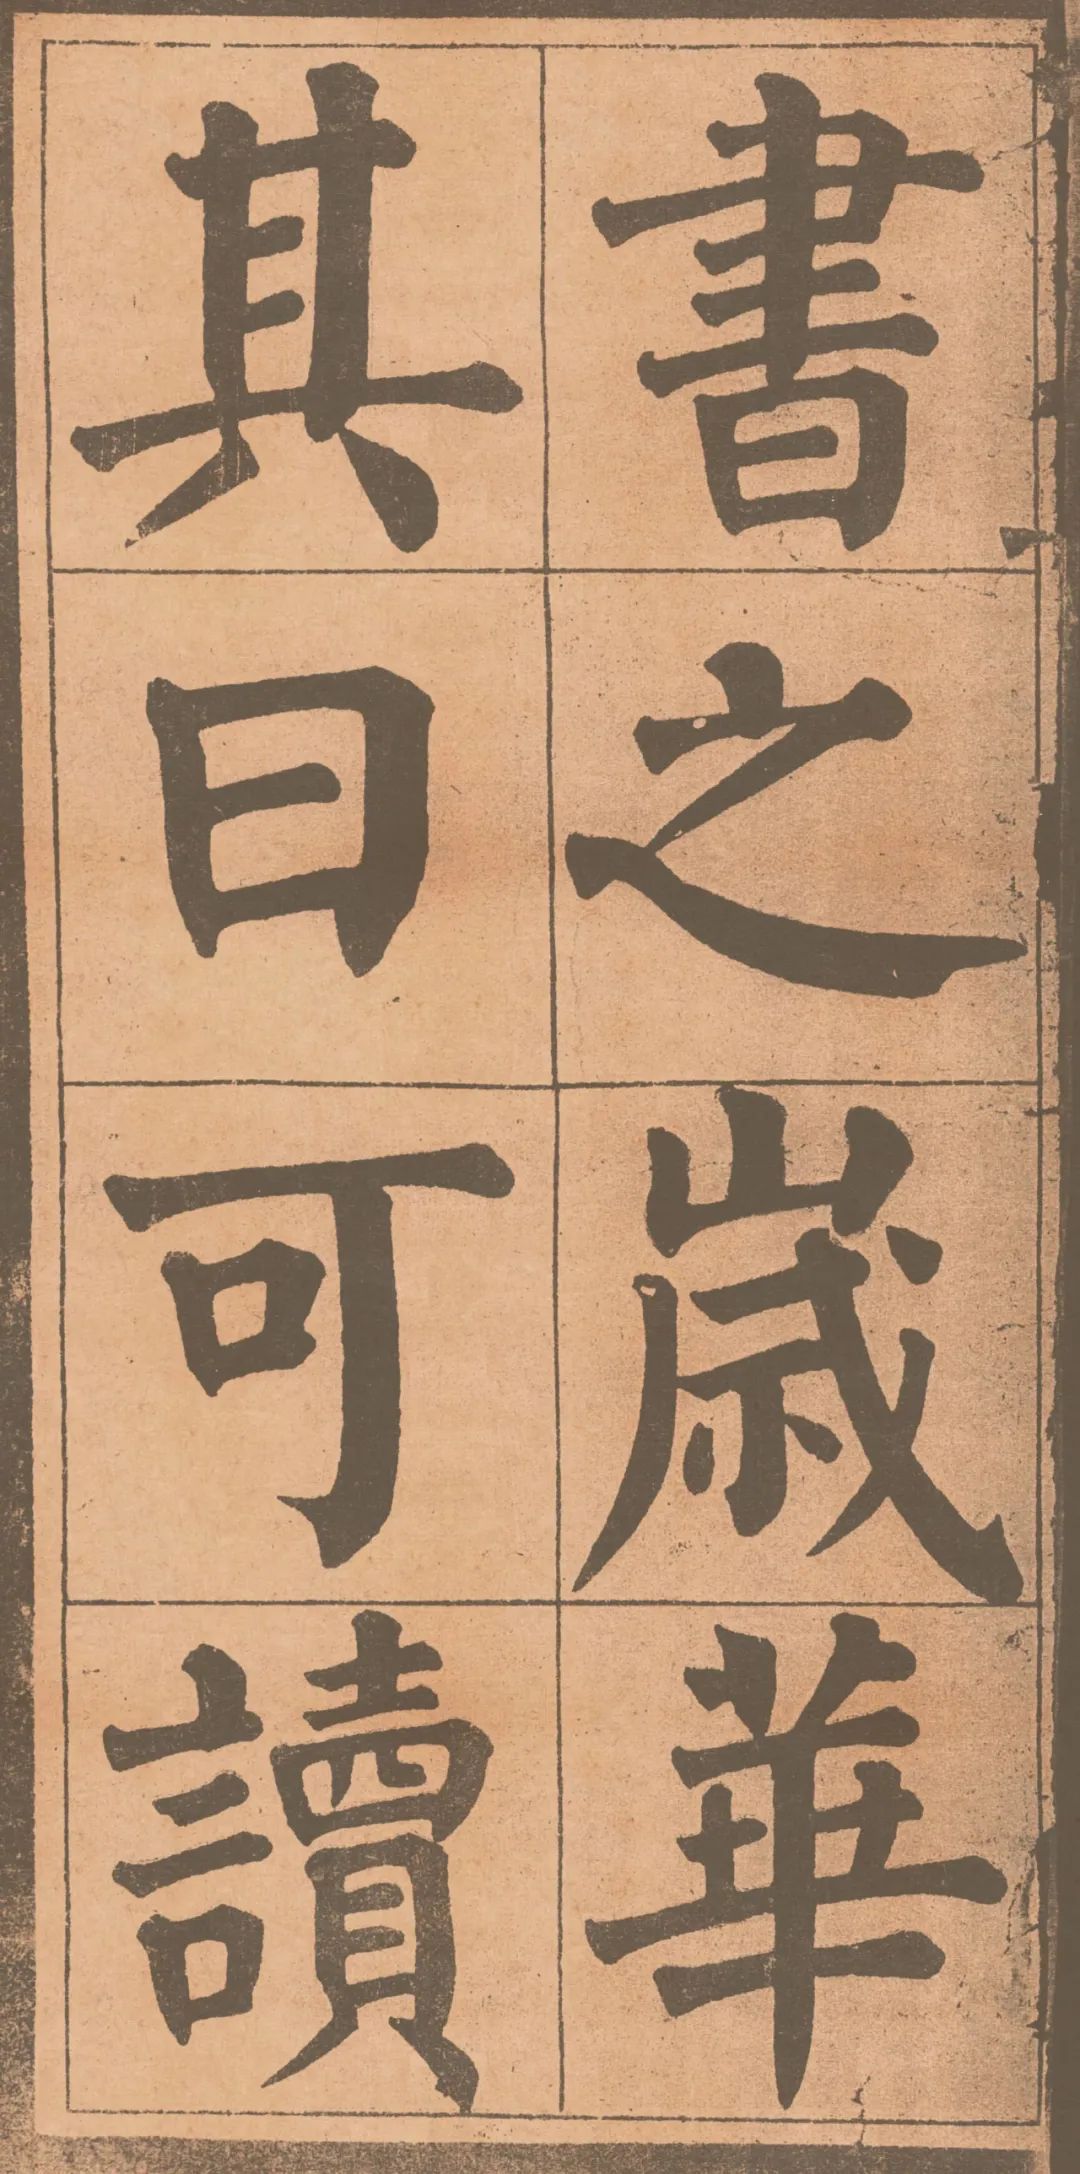 書之歲華
其曰可讀